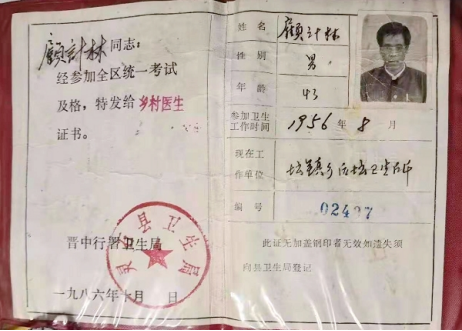 顾计林同志：
经参加全区统一考试
及格，特发给乡村医生
证书。
晋中行署卫生局
县卫生局
一九八六年十月 日
姓名 顾计林
性别 男
年龄 43
参加卫生工作时间 1956年8月
现在工作单位
编号
此证无加盖钢印者无效如遗失须
向县卫生局登记